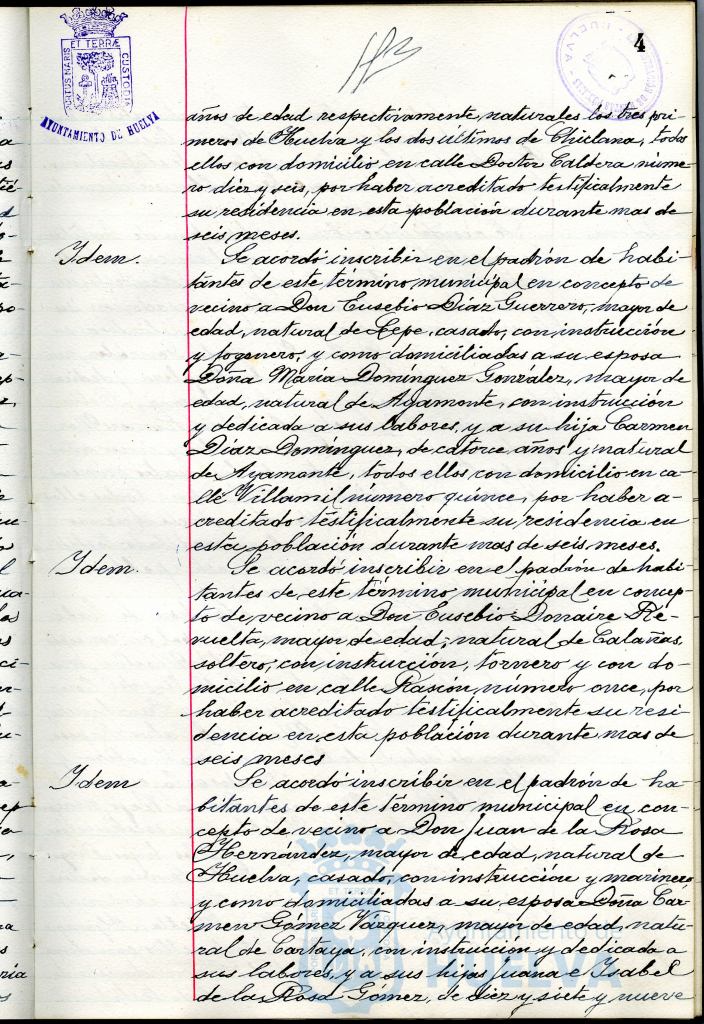 4
PORTUS MARIS ET TERRÆ CUSTODIA
AYUNTAMIENTO DE HUELVA
HUELVA
años de edad respectivamente, naturales los tres pri-
meros de Huelva y los dos últimos de Chiclana, todos
ellos con domicilio en calle Doctor Caldera núme-
ro diez y seis, por haber acreditado testificalmente
su residencia en esta población durante mas de
seis meses.
Idem.
Se acordó inscribir en el padrón de habi-
tantes de este término municipal en concepto de
vecino a Don Eusebio Díaz Guerrero, mayor de
edad, natural de Lepe, casado, con instrucción
y fogonero, y como domiciliadas a su esposa
Doña María Domínguez González, mayor de
edad, natural de Ayamonte, con instrucción
y dedicada a sus labores, y a su hija Carmen
Díaz Domínguez, de catorce años y natural
de Ayamonte, todos ellos con domicilio en ca-
lle Villamil número quince, por haber a-
creditado testificalmente su residencia en
esta población durante mas de seis meses.
Idem.
Se acordó inscribir en el padrón de habi-
tantes de este término municipal en concep-
to de vecino a Don Eusebio Donaire Re-
vuelta, mayor de edad, natural de Calañas,
soltero, con instrucción, tornero y con do-
micilio en calle Rascón, número once, por
haber acreditado testificalmente su resi-
dencia en esta población durante mas de
seis meses
Idem
Se acordó inscribir en el padrón de ha-
bitantes de este término municipal en con-
cepto de vecino a Don Juan de la Rosa
Hernández, mayor de edad, natural de
Huelva, casado, con instrucción y marinero,
y como domiciliadas a su esposa Doña Car-
men Gómez Vázquez, mayor de edad, natu-
ral de Cartaya, con instrucción y dedicada a
sus labores, y a sus hijas Juana e Isabel
de la Rosa Gómez, de diez y siete y nueve
Ayuntamiento de
HUELVA